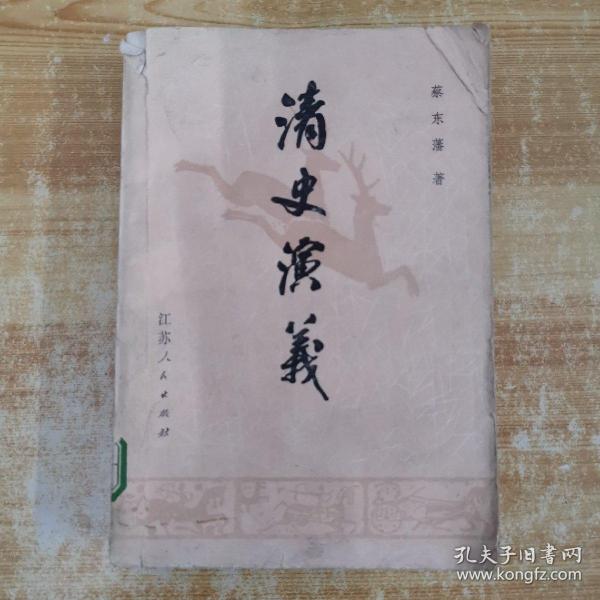 蔡东藩 著
清史演義
江苏人民出版社
孔夫子旧書网
www.kongfz.com